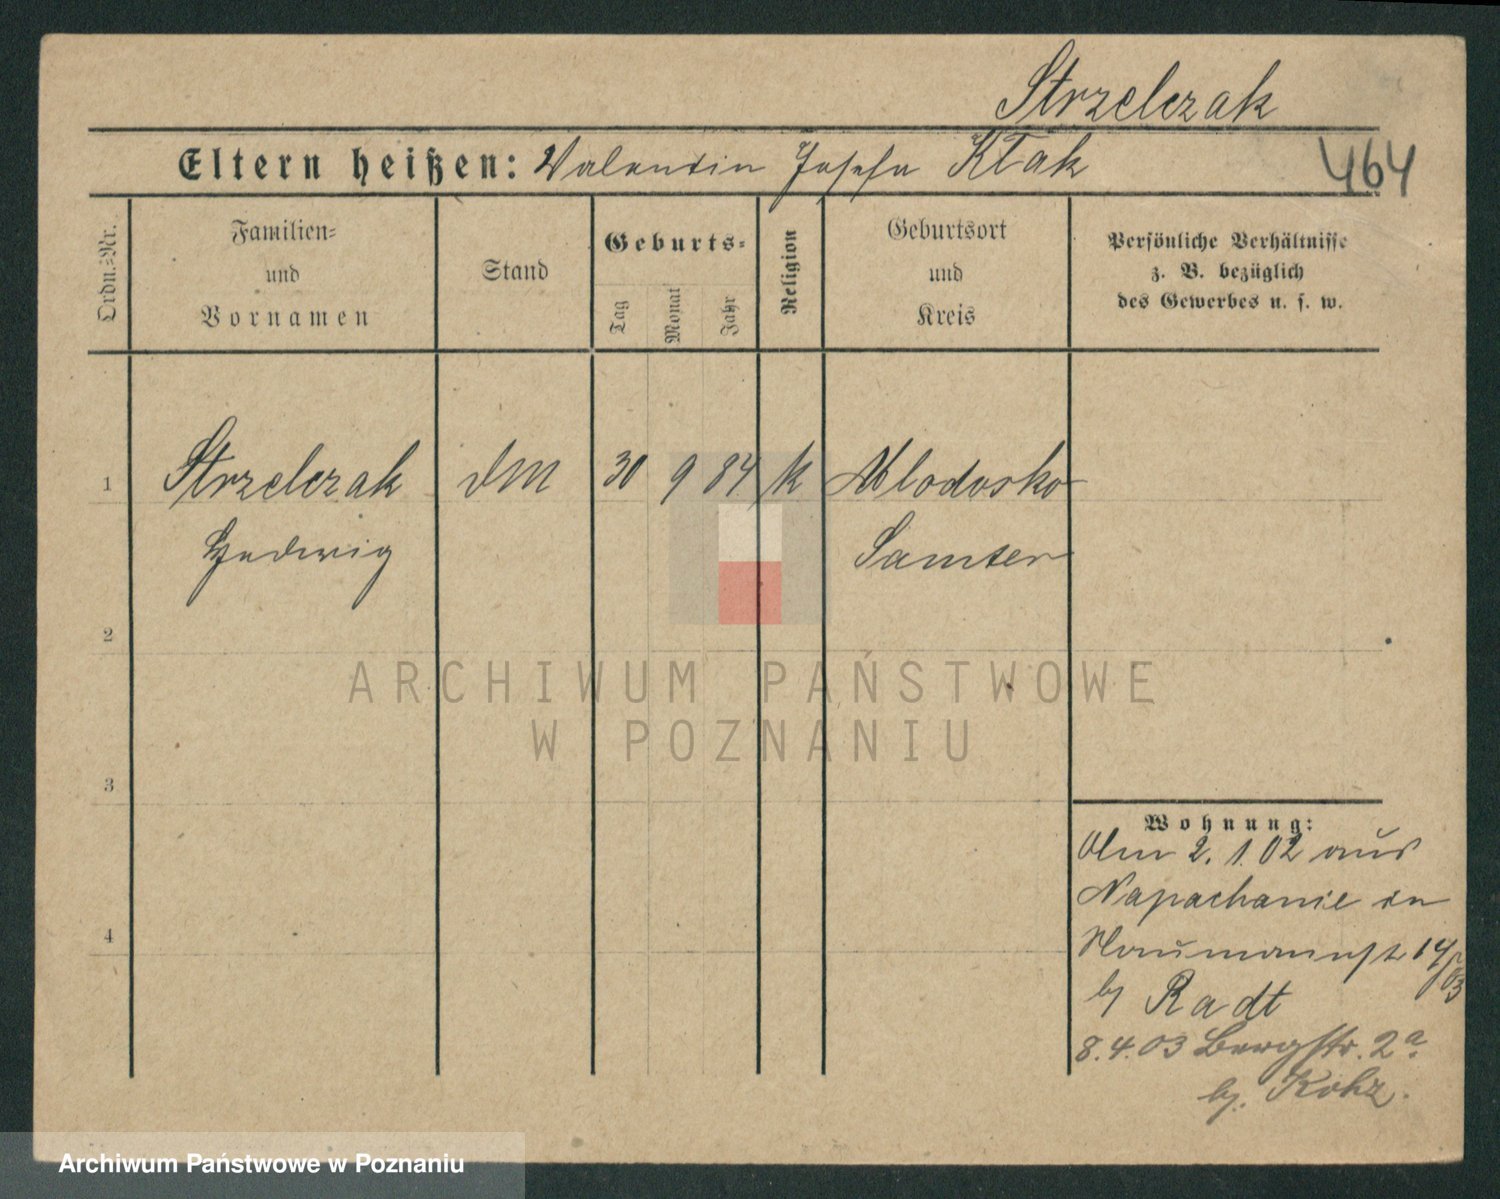 Strzelczak
Eltern heißen: Valentin Josefa Kłak
464
Ordn.=Nr.
Familien=
und
Vornamen
Stand
Geburts=
Tag
Monat
Jahr
Religion
Geburtsort
und
Kreis
Persönliche Verhältnisse
z. B. bezüglich
des Gewerbes u. s. w.
1
Strzelczak
DM
30 9 84
k
Mlodasko
Hedwig
Samter
2
ARCHIWUM PAŃSTWOWE
W POZNANIU
3
Wohnung:
2. 1. 02 aus
Napachanie in
Naumannstr 14/
b/ Radt
8. 4. 03 Bergstr. 2a.
b/.
4
Archiwum Państwowe w Poznaniu